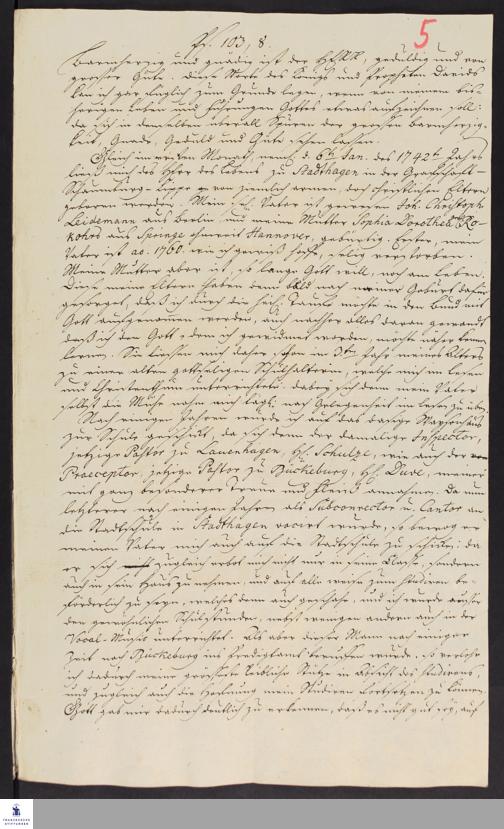 5
Ps. 103, 8.
Barmherzig und gnädig ist der HERR, geduldig und von
grosser Güte. Diese Worte des Königs und Propheten Davids
kan ich gar füglich zum Grunde legen, wenn von meinem bis-
herigen Leben und Führungen Gottes etwas aufzeichnen soll:
da sich in demselben überall Spuren der grossen Barmherzig-
keit, Gnade, Geduld und Güte sehen lassen.
Gleich im ersten Monath, neml. d. 6ten Jan. des 1742ten Jahrs
ließ mich der HErr des Lebens zu Stadthagen in der Graffschaft
Schaumburg-Lippe von ziemlich armen, doch christlichen Eltern
geboren werden. Mein sel. Vater ist gewesen Joh. Christoph
Leidemann aus Berlin und meine Mutter Sophia Dorothea Ro-
kohrs aus Springe ohnweit Hannover gebürtig. Erster, mein
Vater ist ao. 1760. wie ich gewiß hoffe, selig verstorben.
Meine Mutter aber ist, so lange Gott will, noch am Leben.
Diese meine Eltern haben denn bald nach meiner Geburt dafür
gesorget, daß ich durch die heil. Taufe möchte in den Bund mit
Gott aufgenommen werden, auch nachher alles daran gewandt
daß ich den Gott, dem ich gewidmet worden, möchte näher kennen
lernen. Sie liessen mich daher schon im 3ten Jahr meines Alters
zu einer alten gottseligen Schulhalterin, welche mich im Lesen
und Christenthum unterrichtete: dabey sich denn mein Vater
selbst die Mühe nahm mich tägl. nach Gelegenheit im Lesen zu üben.
Nach einigen Jahren wurde ich auf das dasige Waysenhaus
zur Schule geschickt, da sich denn der damalige Inspector,
jetzige Pastor zu Lauenhagen, H. Schultze, wie auch der
Praeceptor, jetzige Pastor zu Bückeburg, H. Duve, meiner
mit ganz besonderer Treue und Fleiß annahmen. Da nun
letzterer nach einigen Jahren als Subconrector u. Cantor an
die Stadtschule in Stadthagen vocirt wurde, so bewog er
meinen Vater mich auch auf die Stadtschule zu schicken: da
er sich zugleich erbot mich nicht nur in seine Classe, sondern
auch in sein Haus zu nehmen, und auf alle weise zum studiren be-
förderlich zu seyn, welches denn auch geschahe, und ich wurde ausser
den gewöhnlichen Schulstunden, nebst wenigen andern auch in der
Vocal-Music unterrichtet. Als aber dieser Mann nach einiger
Zeit nach Bückeburg ins Predigtamt beruffen wurde: so verlohr
ich dadurch meine grosseste leibliche Stütze in Absicht des studirens,
und zugleich auch die Hoffnung mein Studiren fortsetzen zu können.
Gott gab mir dadurch deutlich zu erkennen, daß es nicht gut sey, auf
FRANCKESCHE
STIFTUNGEN